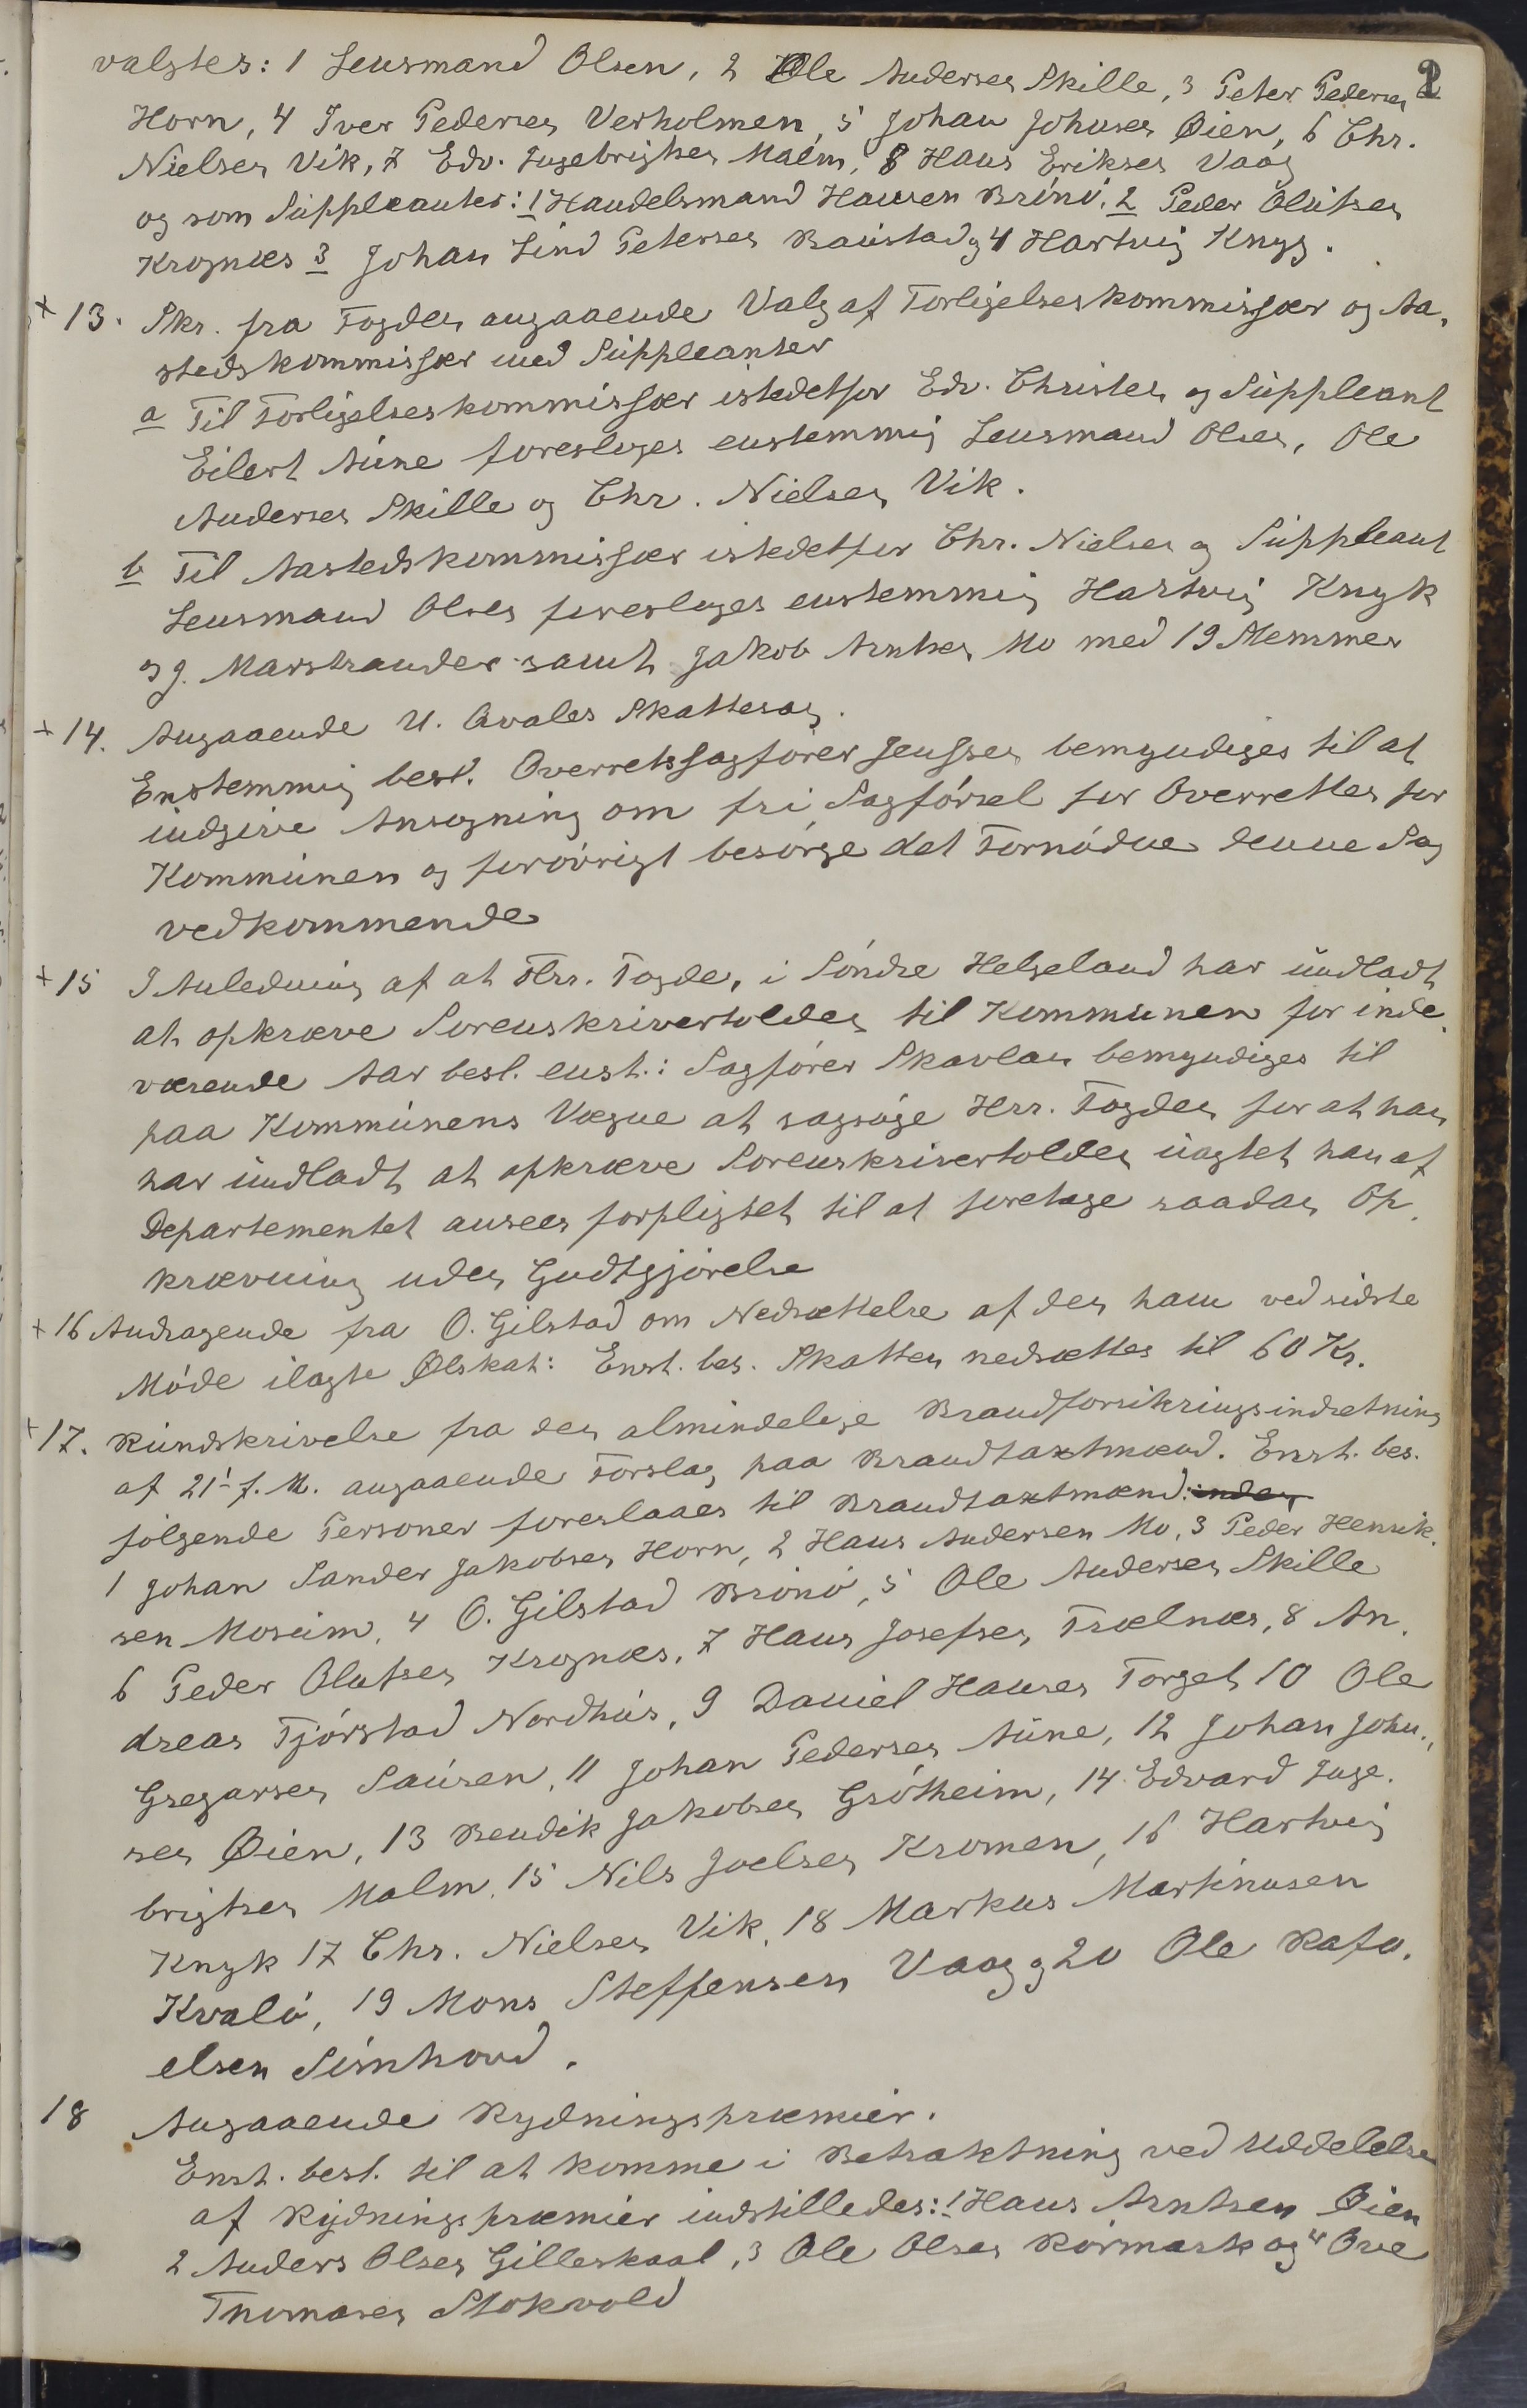 2
valgtes: 1 Lensmand Olsen, 2 Ole Andersen Skille, 3 Peter Pedersen
Horn, 4 Iver Pedersen Verholmen, 5 Johan Johnsen Øien, 6 Chr.
Nielsen Vik, 7 Edv. Ingebrigtsen Malm, 8 Hans Eriksen Vaag
og som Suppleanter: 1 Handelsmand Hansen Brönö, 2 Peder Olufsen
Krognæs 3 Johan Lind Petersen Baustad og 4 Hartvig Knyg.
+ 13. Skr. fra Fogden angaaende Valg af Forligelseskommissær og Aa-
stedskommissær med Suppleanter
a Til Forligelseskommissær istedetfor Edv. Christen. og Suppleant
Eilert Aune foresloges enstemmig Lensmand Olsen, Ole
Andersen Skille og Chr. Nielsen Vik.
b Til Aastedskommissær istedetfor Chr. Nielsen og Suppleant
Lensmand Olsen foresloges enstemmig Hartvig Knyk
og J. Marstrander samt Jakob Arntsen Mo med 19 Stemmer
+ 14. Angaaende U. Qvales Skattesag.
Enstemmig besl. Overretssagförer Jenssen bemyndiges til at
indgive Ansøgning om fri Sagförsel for Overretten for
Kommunen og forövrigt besörge det Fornödne denne Sag
vedkommende
+ 15 I Anledning af at Hrr. Fogden i Söndre Helgeland har undladt
at opkræve Sorenskrivertolden til Kommunen for inde-
værende Aar besl. enst.: Sagförer Skavlan bemyndiges til
paa Kommunens Vegne at sagsöge Hrr. Fogden for at han
har undladt at opkræve Sorenskrivertolden uagtet han af
Departementet ansees forpligtet til at foretage saadan Op-
krævning uden Godtgjörelse
+ 16 Andragende fra O. Gilstad om Nedsættelse af den ham ved sidste
Möde ilagte Ølskat: Enst. bes. Skatten nedsættes til 60 Kr.
+ 17. Rundskrivelse fra den almindelige Brandforsikringsindretning
af 21 f. M. angaaende Forslag paa Brandtaxtmænd. Enst. bes.
fölgende Personer foreslaaes til Brandtaxtmænd:
1 Johan Sander Jakobsen Horn, 2 Hans Andersen Mo, 3 Peder Henrik-
sen Moseim, 4 O. Gilstad Brönö, 5 Ole Andersen Skille
6 Peder Olufsen Krognæs, 7 Hans Josefsen Trælnæs, 8 An-
dreas Tjörstad Nordhus, 9 Daniel Hansen Torget 10 Ole
Gregarsen Sausen, 11 Johan Pedersen Aune, 12 Johan John-
sen Øien, 13 Bendik Jakobsen Grötheim, 14 Edvard Inge-
brigtsen Malm, 15 Nils Joelsen Kromen, 16 Hartvig
Knyk 17 Chr. Nielsen Vik, 18 Markus Martinusen
Kvalö, 19 Mons Steffensen Vaag og 20 Ole Rafa-
elsen Sömhovd.
18 Angaaende Rydningspræmier.
Enst. besl. til at komme i Betraktning ved Uddelelse
af Rydningspræmier indstilledes: 1 Hans Arntsen Øien
2 Anders Olsen Gilleskaal, 3 Ole Olsen Rörmark og 4 Ove
Thomasen Stokvold